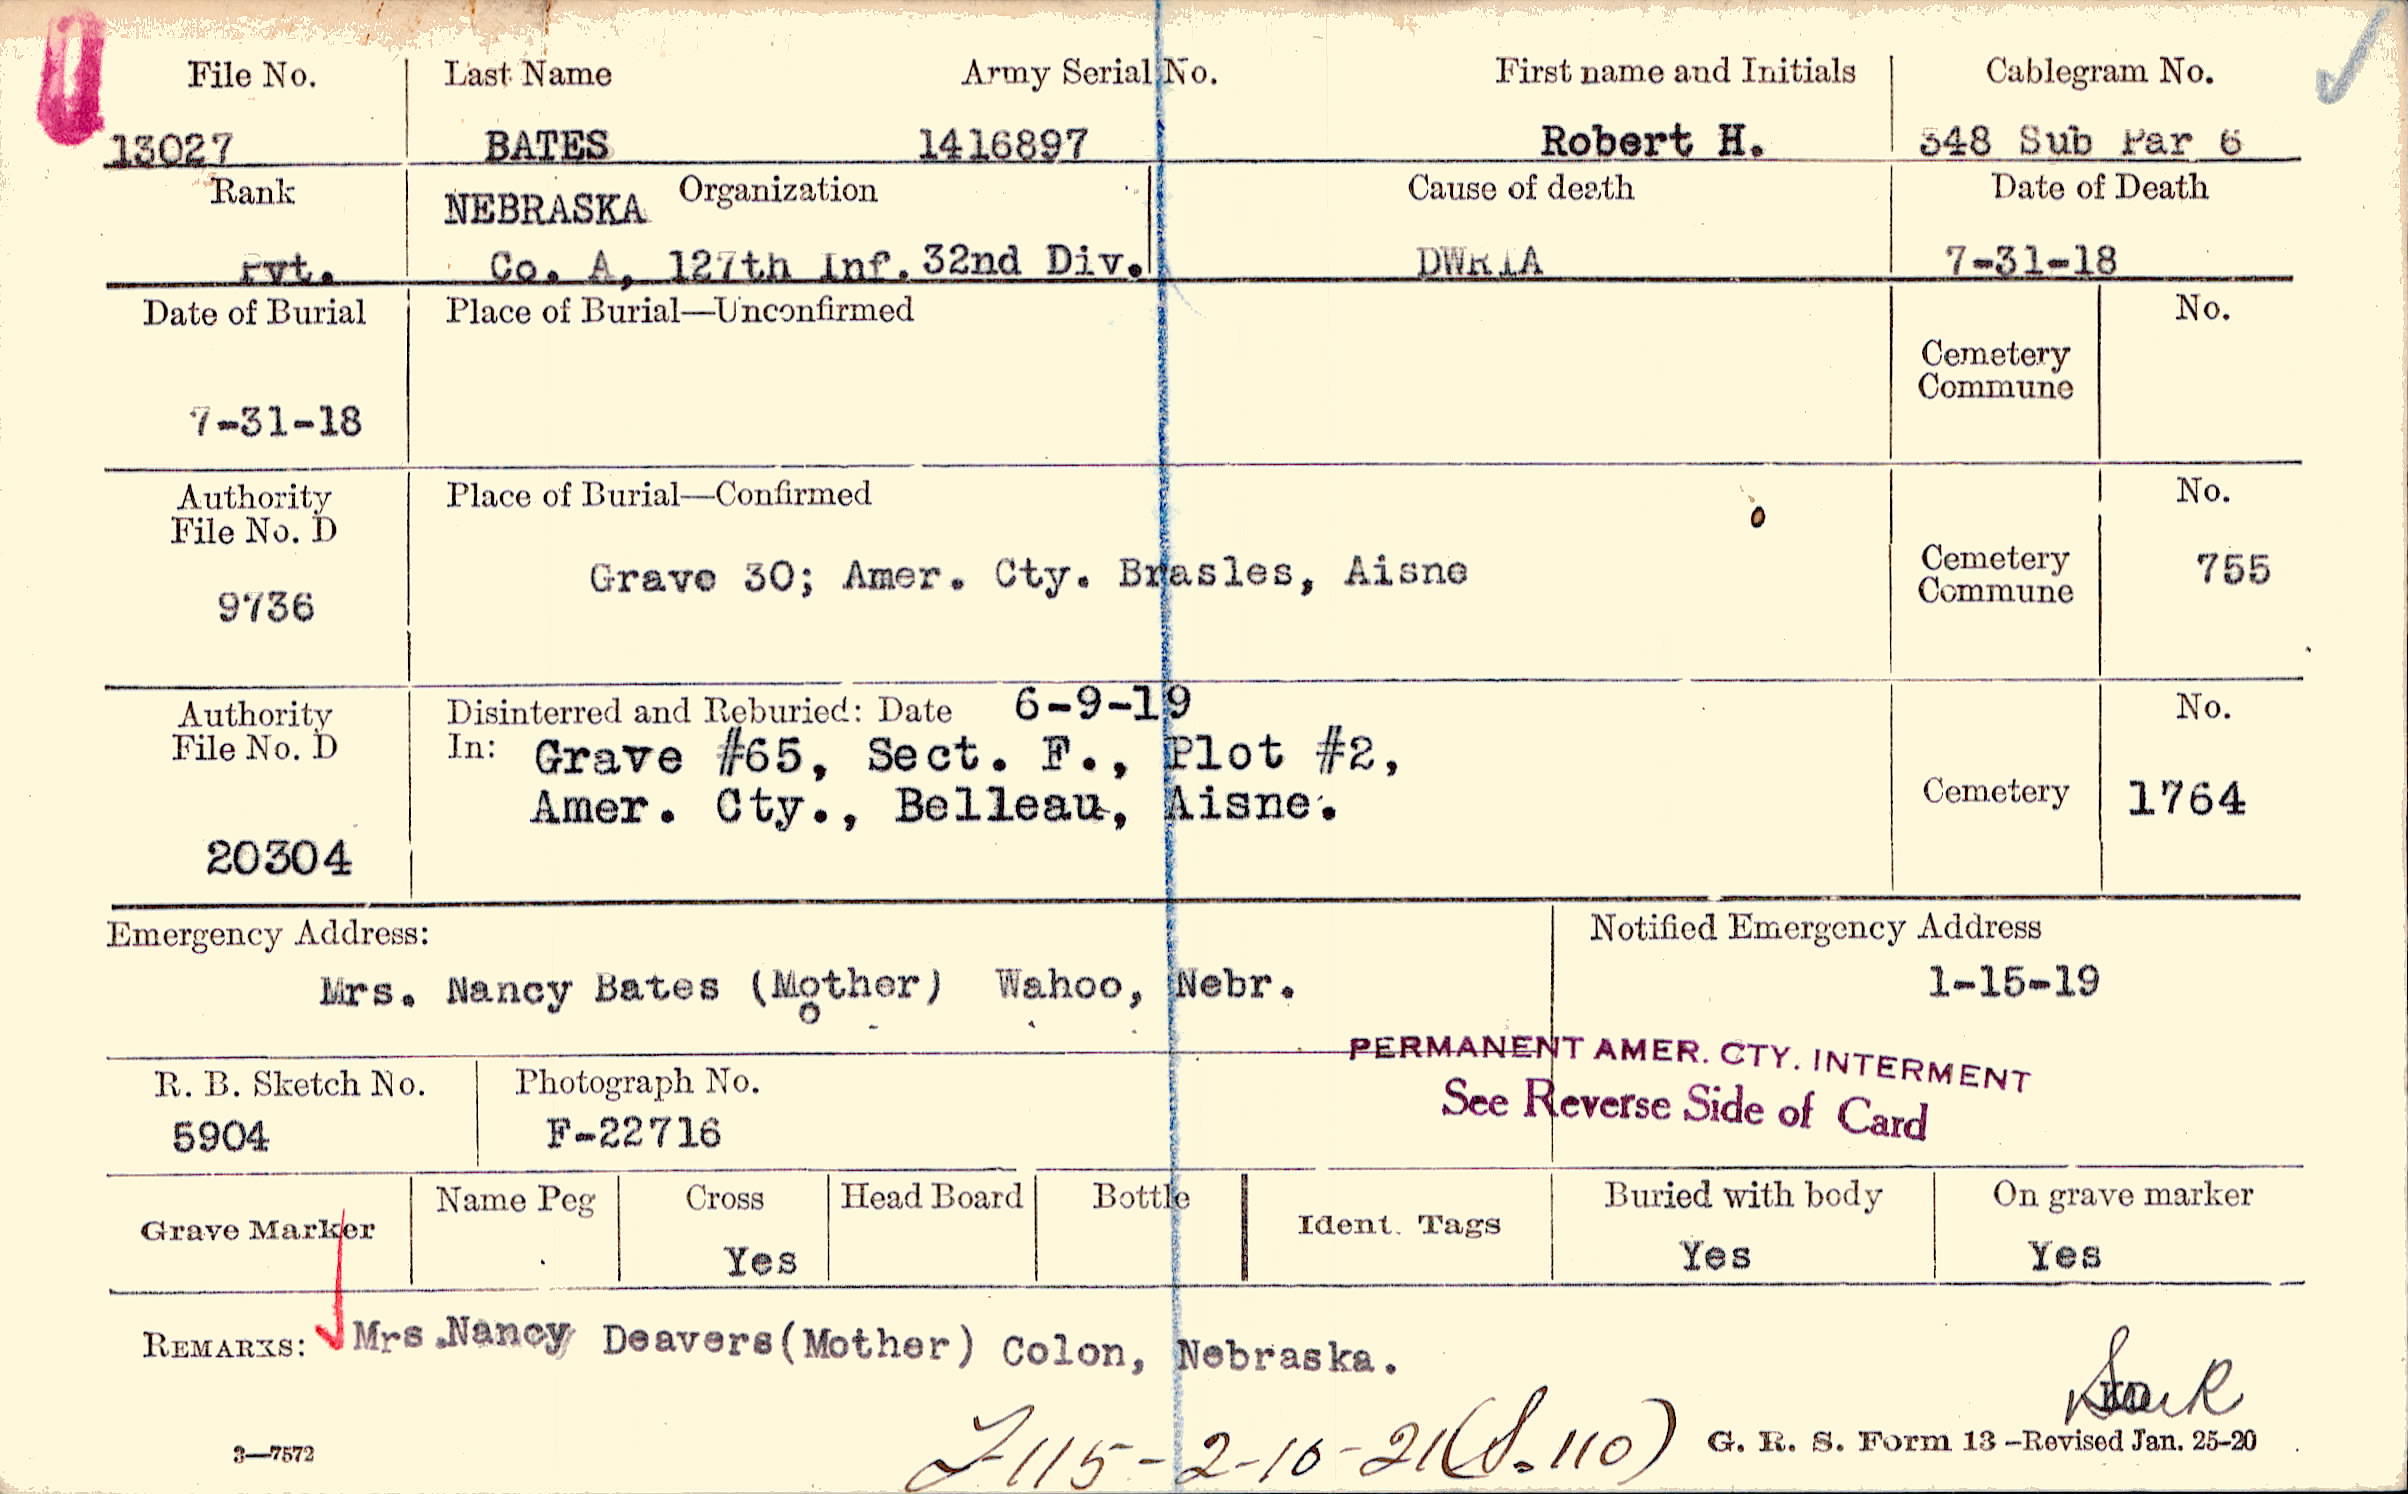 File No. Last Name Army Serial No. First name and Initials Cablegram No.
13027 BATES 1416897 Robert H. 348 Sub Par 6
Rank Organization Cause of death Date of Death
NEBRASKA
Pvt. Co. A, 127th Inf. 32nd Div. DWRIA 7-31-18
Date of Burial Place of Burial—Unconfirmed No.
Cemetery
Commune
7-31-18
Authority Place of Burial—Confirmed No.
File No. D
Grave 30; Amer. Cty. Brasles, Aisne Cemetery 755
Commune
9736
Authority Disinterred and Reburied: Date 6-9-19 No.
File No. D In: Grave #65, Sect. F., Plot #2,
Amer. Cty., Belleau, Aisne. Cemetery 1764
20304
Emergency Address: Notified Emergency Address
Mrs. Nancy Bates (Mother) Wahoo, Nebr. 1-15-19
PERMANENT AMER. CTY. INTERMENT
See Reverse Side of Card
R. B. Sketch No. Photograph No.
5904 F-22716
Grave Marker Name Peg Cross Head Board Bottle Ident. Tags Buried with body On grave marker
Yes Yes Yes
REMARKS: Mrs.Nancy Deavers(Mother) Colon, Nebraska.
115-2-10-21(S.110)
3—7572 G. R. S. Form 13-Revised Jan. 25-20